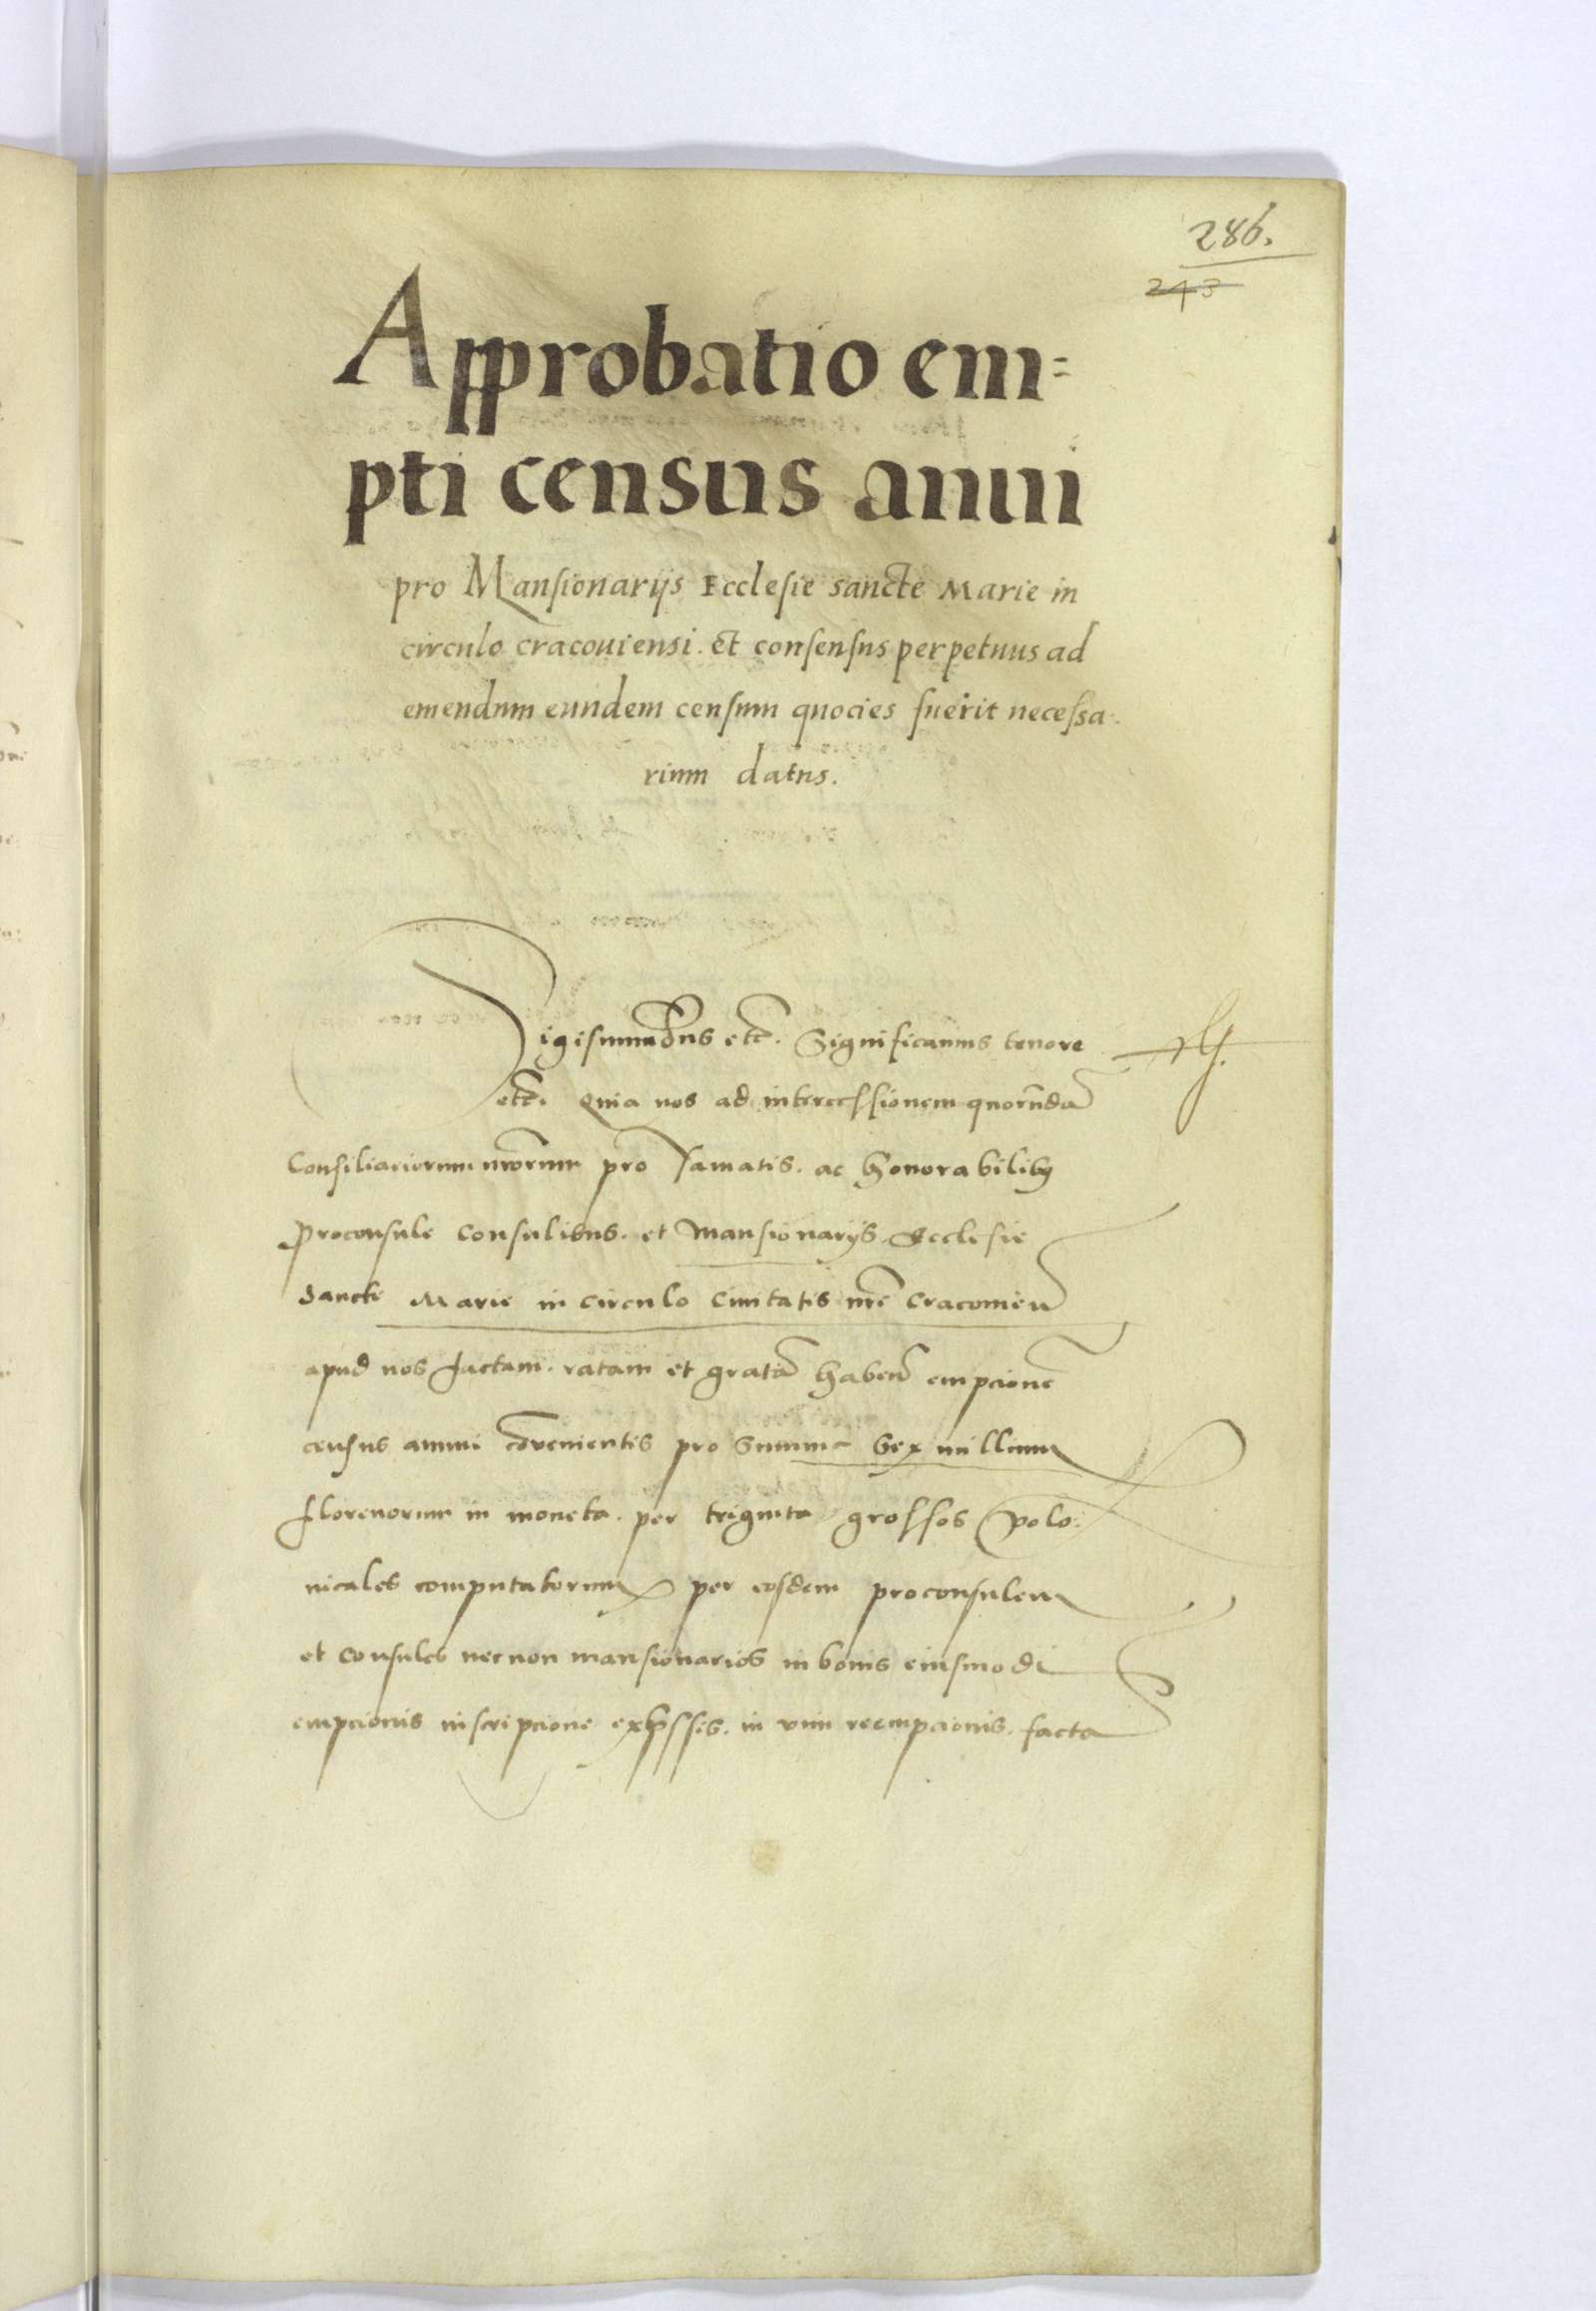 286.
243
Approbatio em=
pti census anui
pro Mansionarijs Ecclesie sancte Marie in
circulo cracouiensi. Et consensus perpetuus ad
emendum eundem censum quocies fuerit necessa
rium datus.
Sigismundus etc. Significamus tenore
etc. Quia nos ad intercessionem quorunda
Consiliariorum nrorum pro famatis. ac honorabilibus
proconsule Consulibus. et Mansionarijs Ecclesie
Sancte Marie in circulo Ciuitatis nre Cracouien
apud nos factam. ratam et grata haben empcione
census annui Convenientis pro Summa Sex millium
florenorum in moneta. per triginta grossos Polo
nicales computatorum per eosdem proconsulem
et Consules necnon mansionarios in bonis eiusmodi
empcionis inscripcione expssis. in vim reempcionis. facta